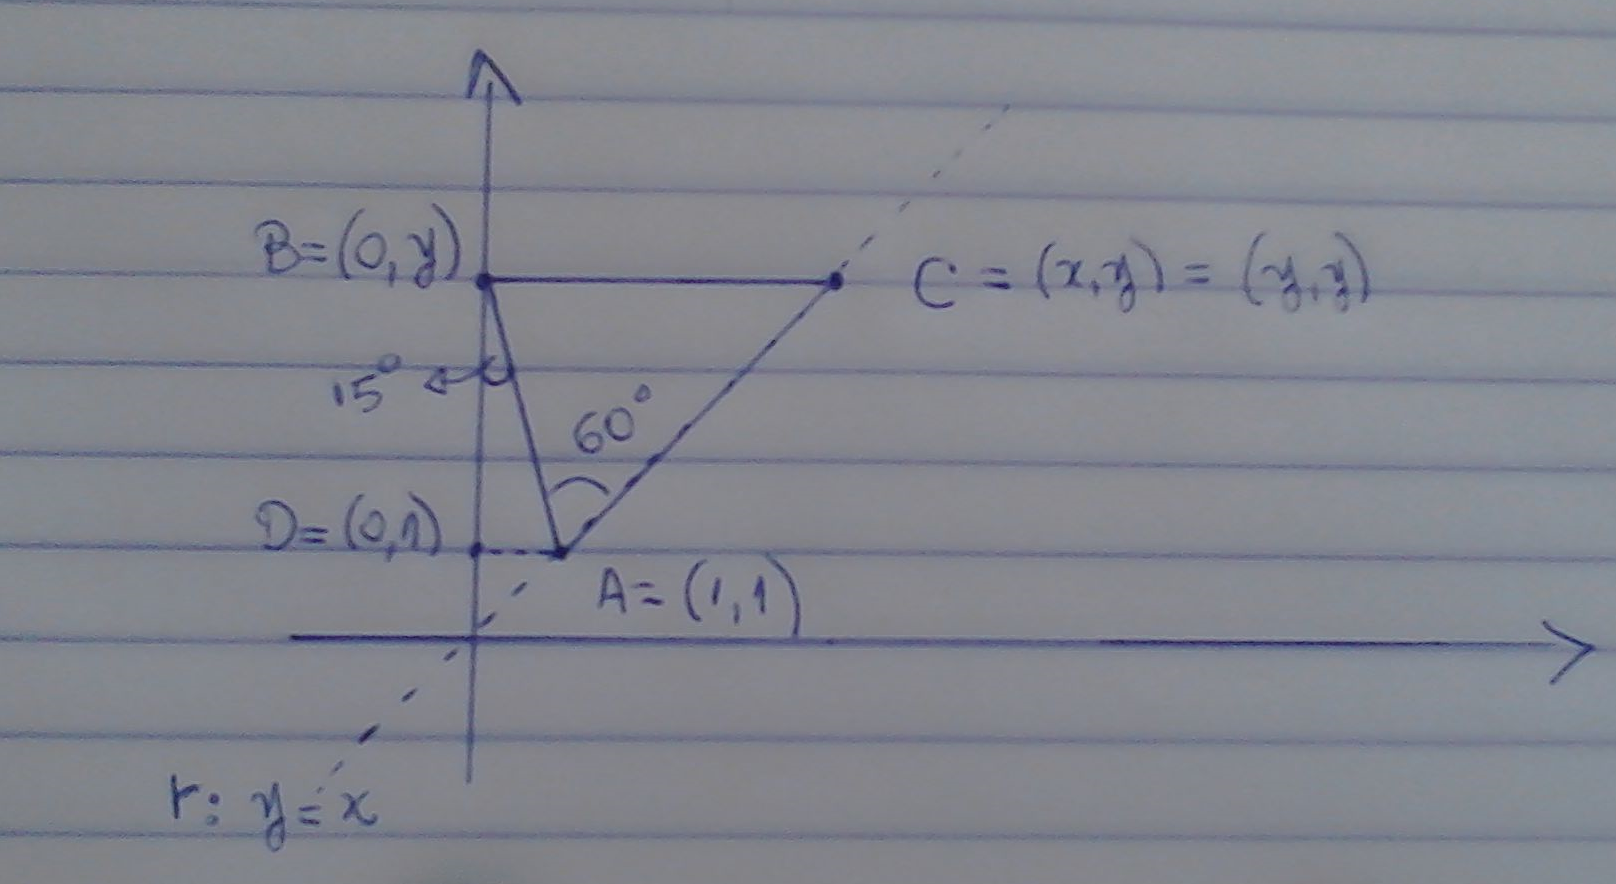 B=(0,y)
C = (x,y) = (y,y)
15°
60°
D=(0,1)
A=(1,1)
r: y=x